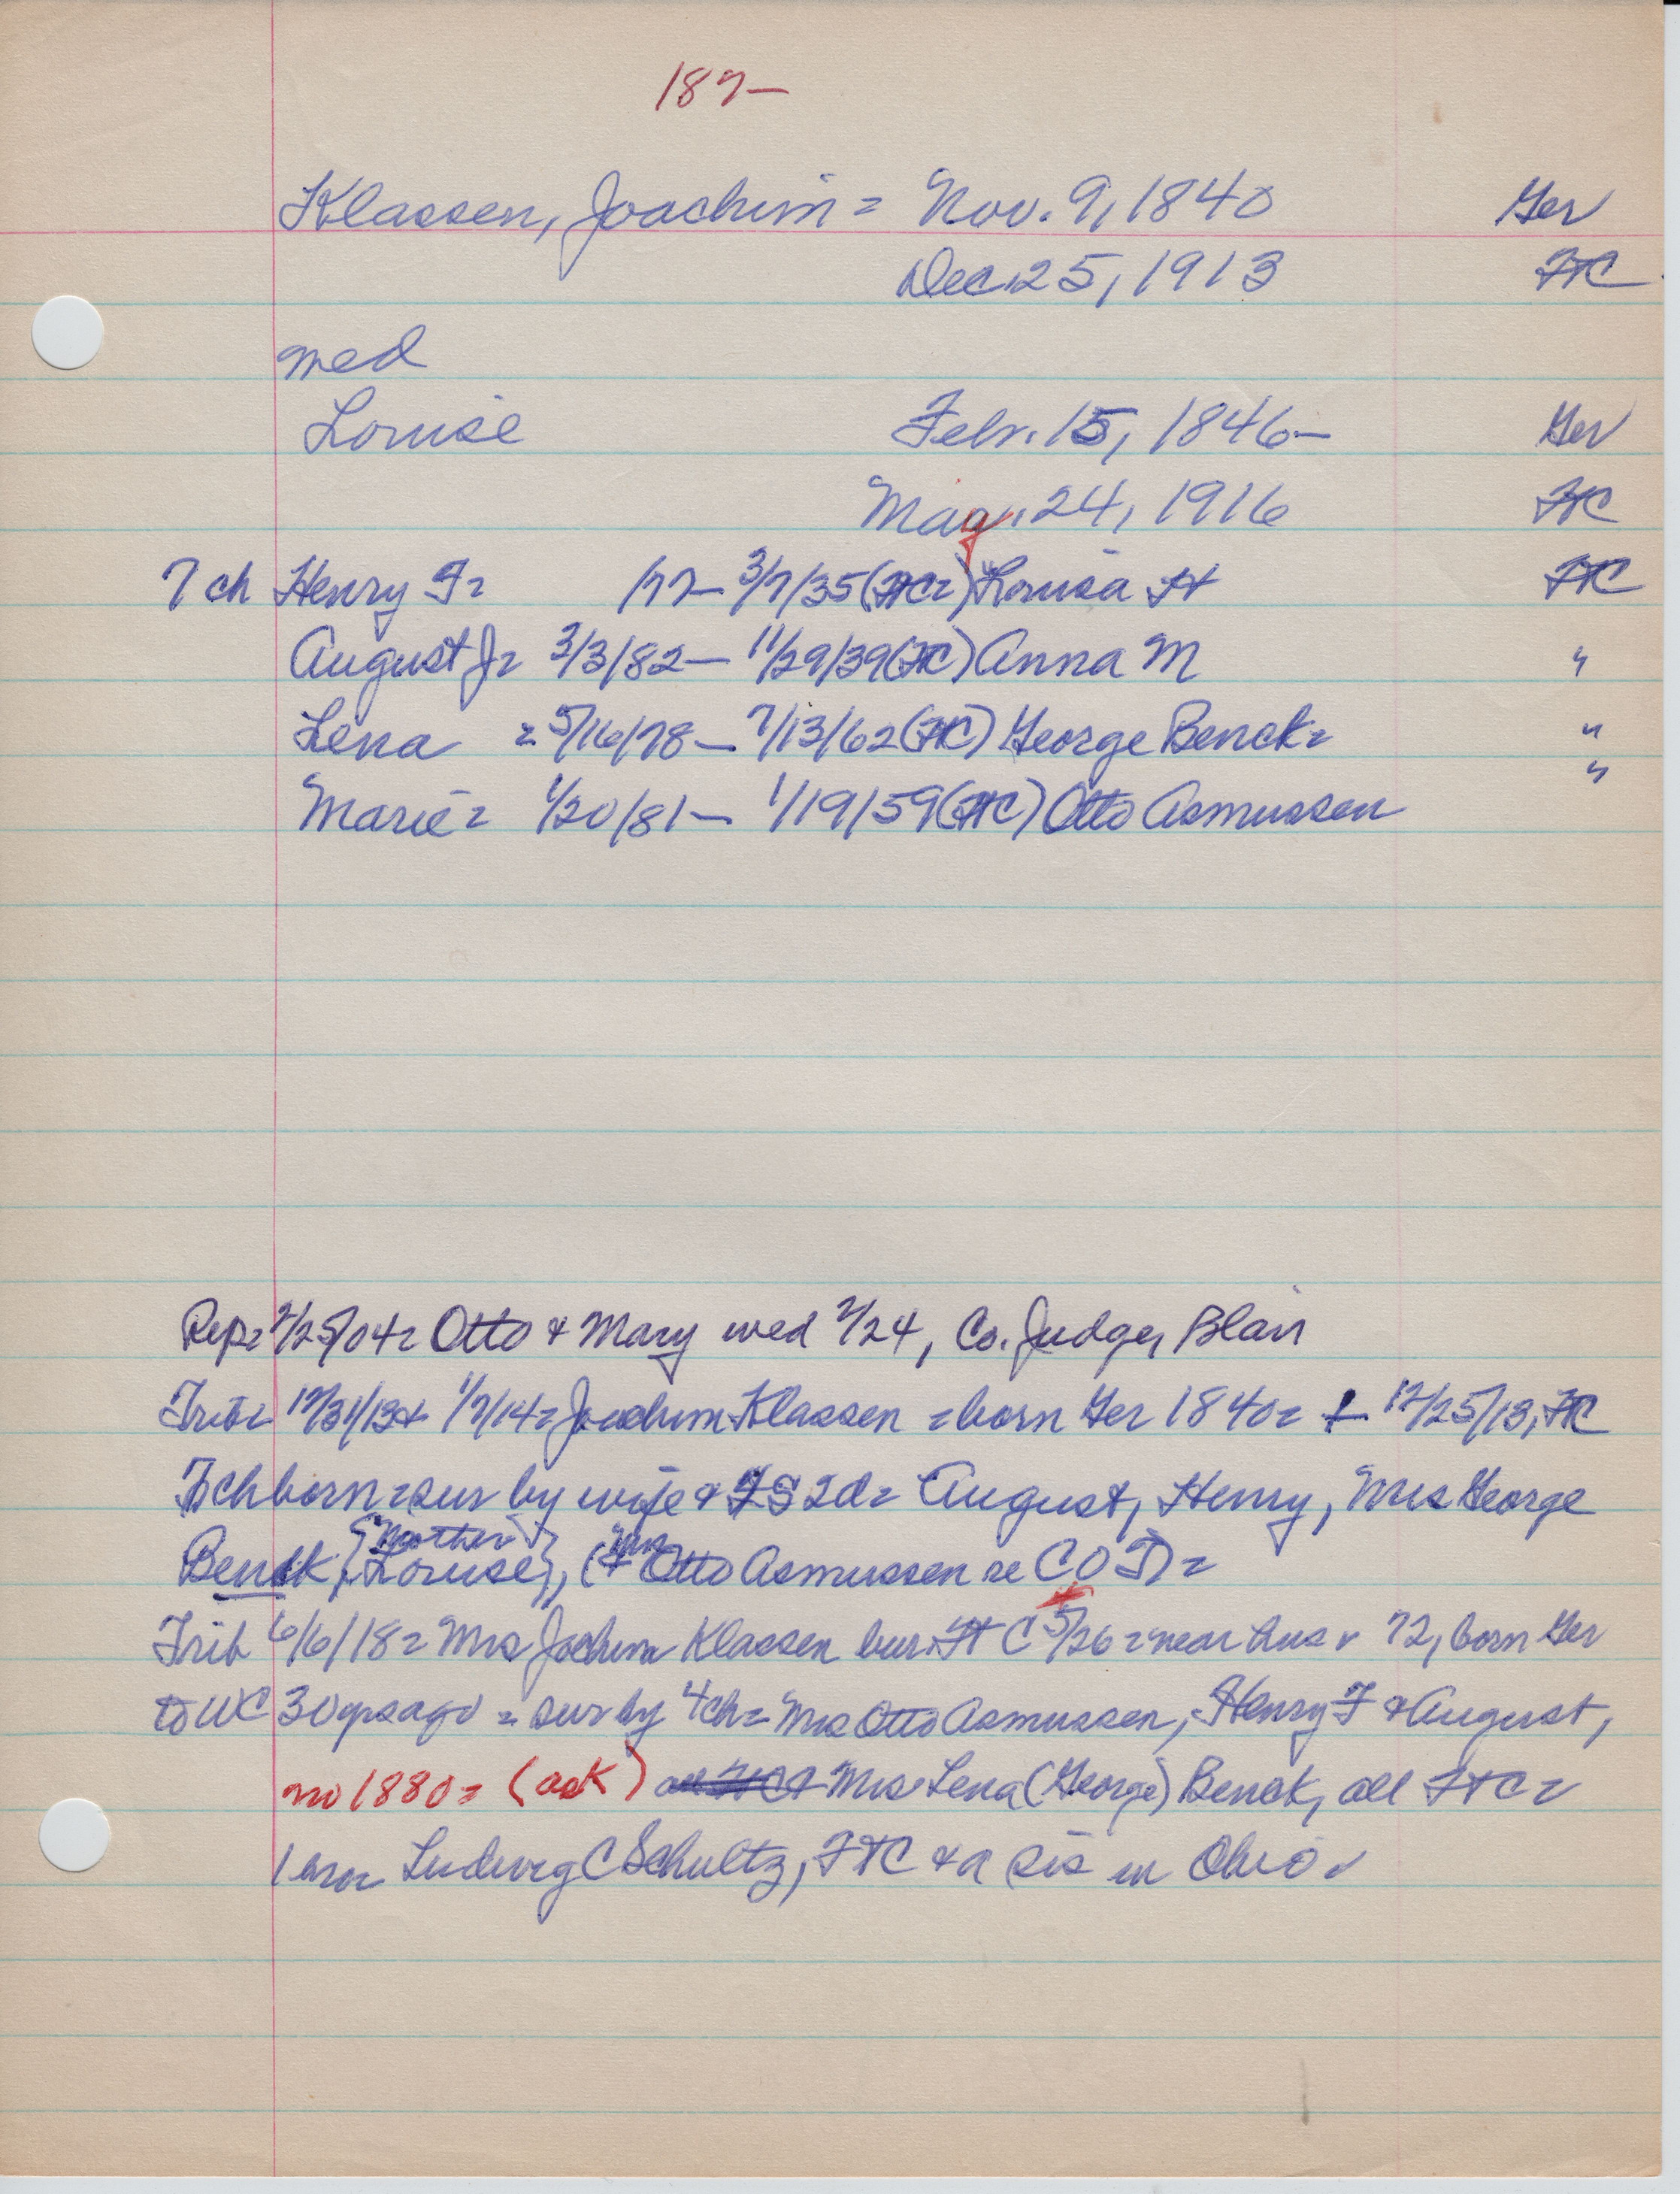 187—
Klassen, Joachim = Nov. 9, 1840 Ger
Dec. 25, 1913 FtC
med
Louise Febr. 15, 1846— Ger
May. 24, 1916 FtC
7 ch Henry F= /77— 3/7/35 (FtC=) Louisa H FtC
August J= 3/3/82— 11/29/39 (FtC) Anna M "
Lena = 5/16/78— 7/13/62 (FtC) George Benck= "
Marie= 1/20/81— 1/19/59 (FtC) Otto Asmussen "
Rep= 2/25/04= Otto & Mary wed 2/24, Co. Judge, Blair
Trib= 12/31/13 & 1/7/14= Joachim Klassen = born Ger 1840= + 12/25/13, FtC
7 ch born = sur by wife & 2S 2d= August, Henry, Mrs George
{mother}
Benck {Louise}, (Mrs Otto Asmussen re COT) =
Trib 6/6/18= Mrs Jochim Klassen bur. Ft C 5/26 = near hus = 72, born Ger
to WC 30 yrs ago = sur by 4 ch= Mrs Otto Asmussen, Henry F & August,
no 1880= (ask) Mrs Lena (George) Benck, all FtC=
1 bro= Ludwig C Schultz, FtC & a sis in Ohio=